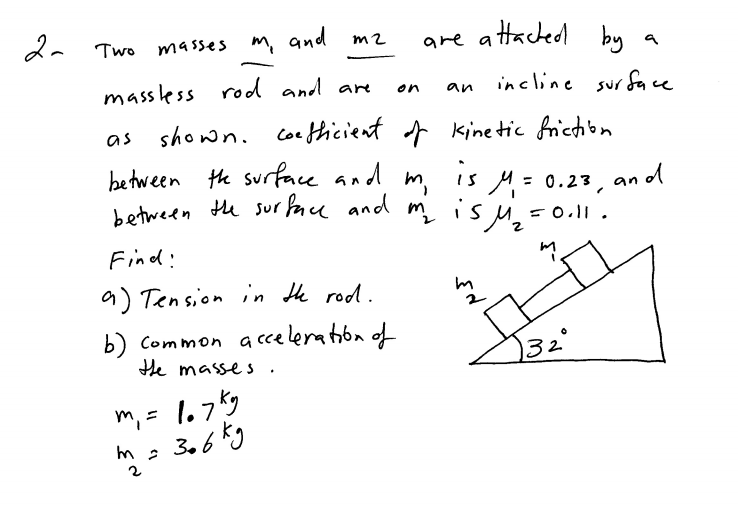 2- Two masses m₁ and m2 are attached by a
massless rod and are on an incline surface
as shown. coefficient of kinetic friction
between the surface and m₁ is μ₁ = 0.23, and
between the surface and m₂ is μ₂ = 0.11.
Find:
a) Tension in the rod.
b) common acceleration of
the masses.
m₁ = 1.7 kg
m₂ = 3.6 kg
m₁
m₂
32°